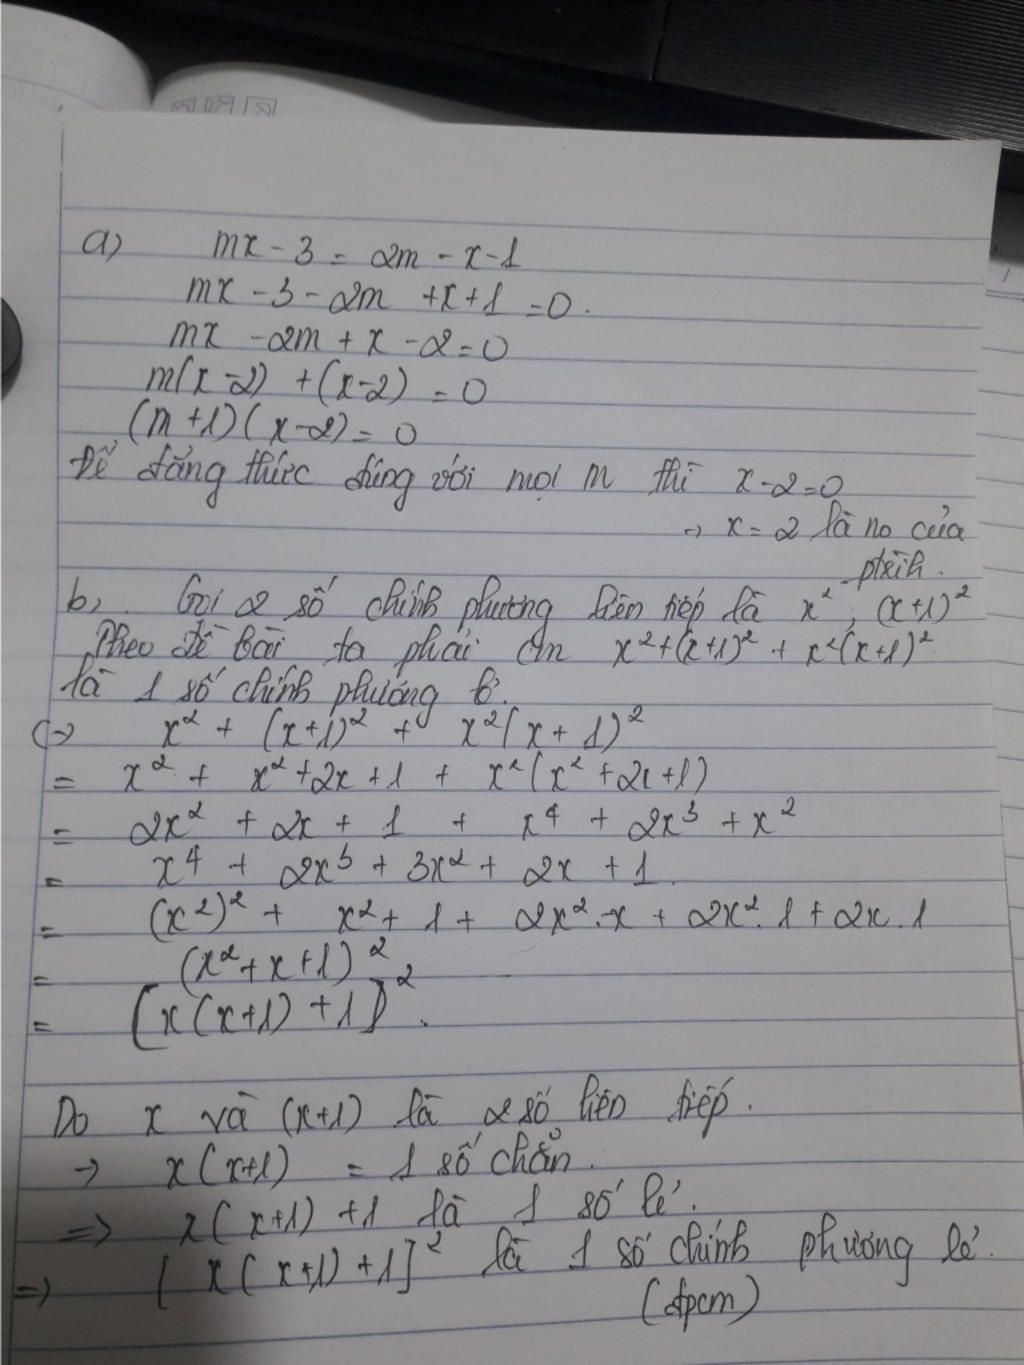 a) mx - 3 = 2m - x - 1
mx - 3 - 2m + x + 1 = 0.
mx - 2m + x - 2 = 0
m(x - 2) + (x - 2) = 0
(m + 1)(x - 2) = 0
Để đẳng thức đúng với mọi m thì x - 2 = 0
→ x = 2 là no của
ptrih.
b, Gọi 2 số chính phương liên tiếp là x², (x+1)²
Theo đề bài ta phải cm x² + (x+1)² + x²(x+1)²
là 1 số chính phương lẻ.
(→ x² + (x+1)² + x²(x + 1)²
= x² + x² + 2x + 1 + x²(x² + 2x + 1)
= 2x² + 2x + 1 + x⁴ + 2x³ + x²
= x⁴ + 2x³ + 3x² + 2x + 1.
= (x²)² + x² + 1 + 2x².x + 2x².1 + 2x.1
= (x² + x + 1)²
= [x(x+1) + 1]².
Do x và (x+1) là 2 số liên tiếp.
→ x(x+1) = 1 số chẵn.
=> x(x+1) + 1 là 1 số lẻ.
=> [x(x+1) + 1]² là 1 số chính phương lẻ.
(đpcm)